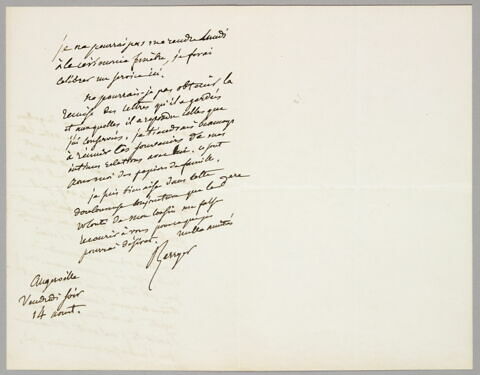 je ne pourrai pas me rendre lundi
à la cérémonie funèbre, je ferai
célébrer un service ici.
ne pourrais-je pas obtenir la
remise des lettres qu'il a gardées
et auxquelles il a répondu celles que
j'ai conservées, je tiendrais beaucoup
à réunir les souvenirs de mes
intimes relations avec lui. ce sont
pour moi des papiers de famille.
je suis bien aise dans cette
douloureuse conjoncture que la
volonté de mon cousin me fasse
recourir à vous pour ce que je
pourrai désirer. mille amitiés
Berryer
Augerville
Vendredi soir
14 aout.